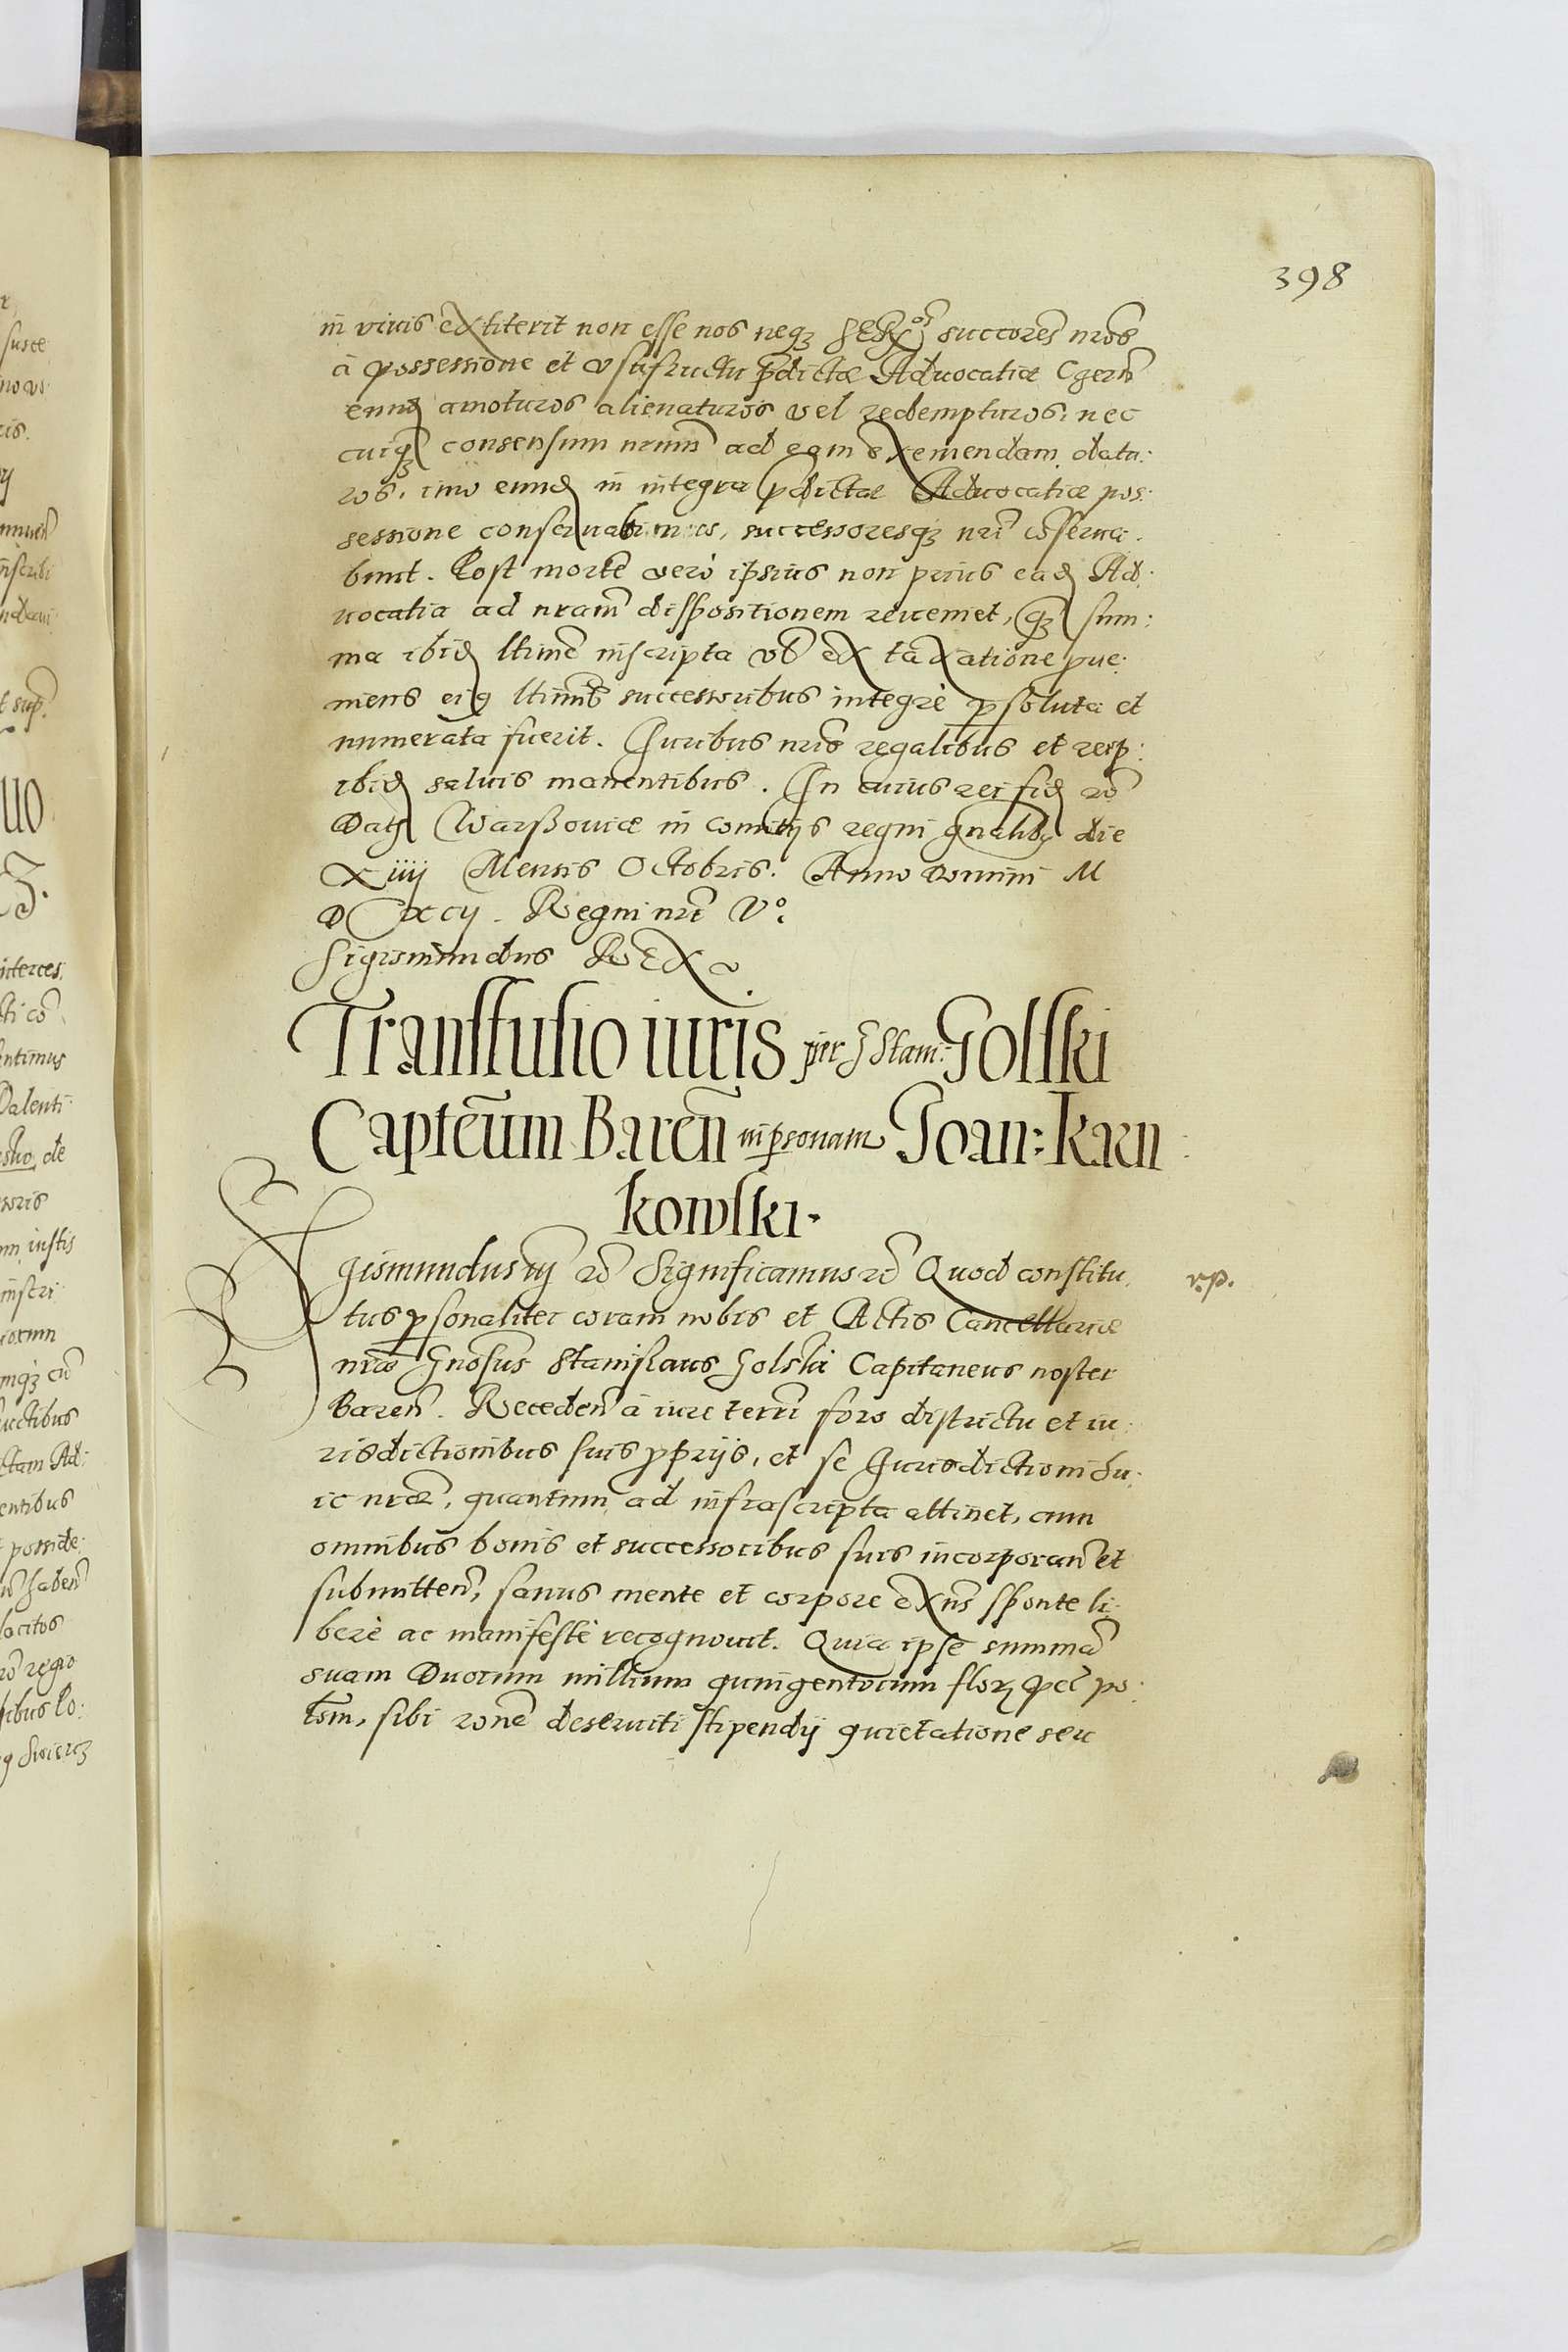 398
in vivis extiterit non esse nos neq3 SERmos succores nr̃os
à possessione et usufructu p̄dictæ Advocatiæ Czern̄
eund amoturos alienaturos vel redempturos, nec
cuiq3 consensum nr̃um ad eam eximendam datu:
ros, imo eund in integra p̄dictae Advocatiæ pos:
sessione conservabimus, successoresq3 nr̃i cōserva:
bunt. Post mortē verò ipsius non prius ead Ad:
vocatia ad nr̃am dispositionem reveniet, q3 sum:
ma ibid ltimē inscripta vel ex taxatione pve:
niens eiq ltimis successoribus integrè psoluta et
numerata fuerit. Juribus nr̃is regalibus et reip:
ibid salvis manentibus. In cuius rei fid rē
Datẜ Warßoviæ in comitijs regni gnalibq die
Xiiij Mensis Octobris. Anno Domini M
D XCij. Regni nr̃i Vo.
Sigismundus REX
Transfusio iuris per G Stani: Golski
Capteum Baren̄ in psonam Joan: Karn
kowski.
Sigismundus iij rē Significamus rē Quod constitu
rp.
tus psonaliter coram nobis et Actis Cancellariæ
nr̃æ Gnosus Stanislaus Golski Capitaneus noster
Baren̄. Receden̄ à iure terrī foro districtu et iu:
risdictionibus suis pprijs, et se Jurisdictioni hu:
ic nr̃æ, quantum ad infrascripta attinet, cum
omnibus bonis et successoribus suis incorporan̄ et
submitten̄, sanus mente et corpore exn̄s sponte li:
berè ac manifestè recognovit. Quia ipse summā
suam Duorum millium quingentorum flor pec po:
lom, sibi ronē deserviti stipendij quietatione seu